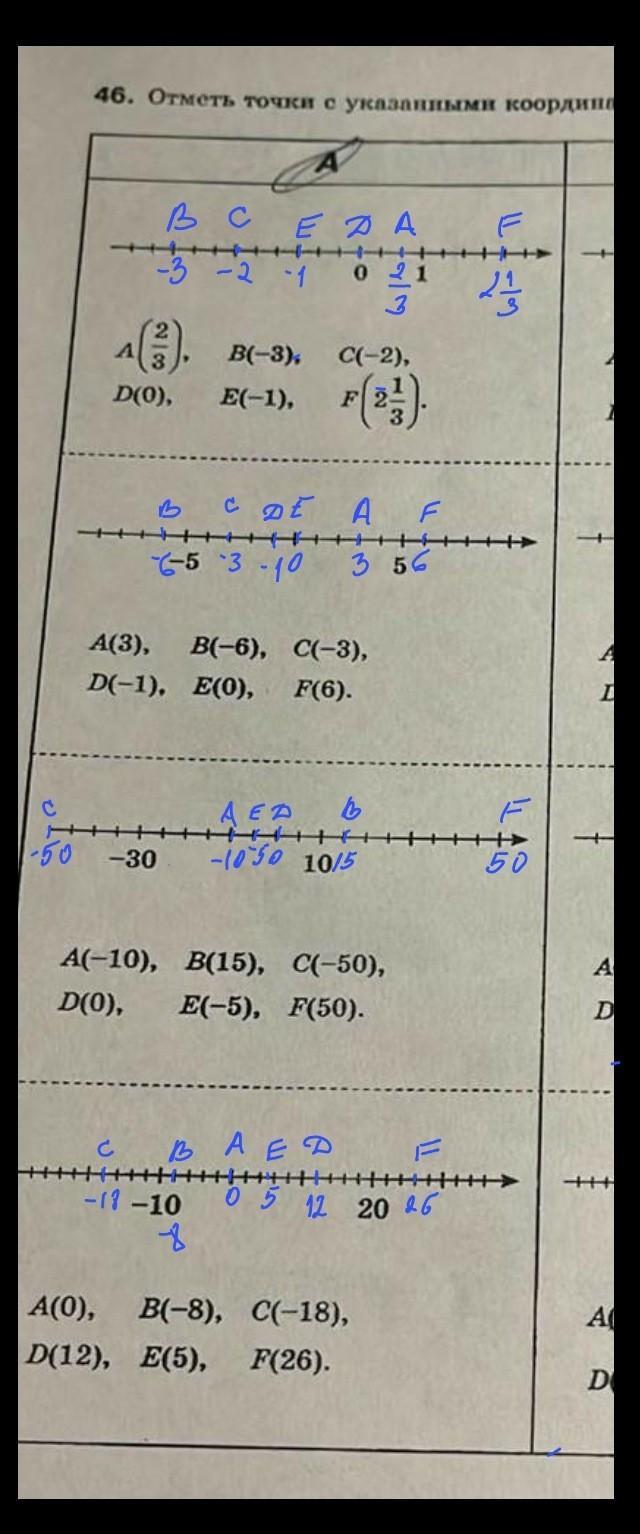 46. Отметь точки с указанными координа
А
B C E D A F
-3 -2 -1 0 2/3 1 2 1/3
A(2/3), B(−3), C(−2),
D(0), E(−1), F(2 1/3).
B C D E A F
-6 −5 -3 -1 0 3 5 6
A(3), B(−6), C(−3),
D(−1), E(0), F(6).
C A E D B F
-50 −30 -10 -5 0 10 15 50
A(−10), B(15), C(−50),
D(0), E(−5), F(50).
C B A E D F
-18 −10 0 5 12 20 26
-8
A(0), B(−8), C(−18),
D(12), E(5), F(26).